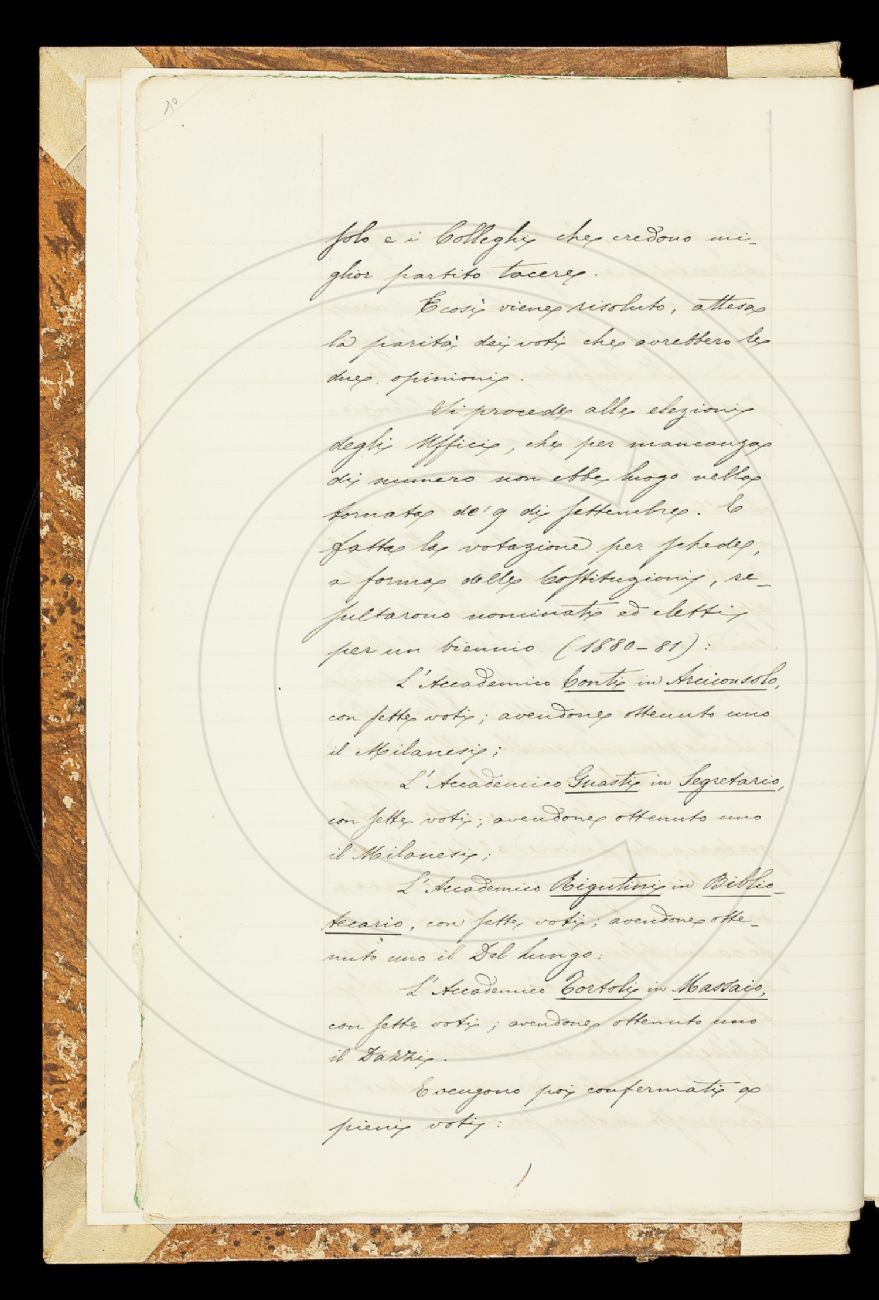 10
solo e i Colleghi che credono mi-
glior partito tacere.
E così viene risoluto, attesa
la parità dei voti che avrebbero le
due opinioni.
Si procede alle elezioni
degli Uffici, che per mancanza
di numero non ebbe luogo nella
tornata de' 9 di settembre. E
fatta la votazione per schede,
a forma delle Costituzioni, re-
sultarono nominati ed eletti
per un biennio (1880-81):
L'Accademico Conti in Arciconsolo,
con sette voti; avendone ottenuto uno
il Milanesi;
L'Accademico Guasti in Segretario,
con sette voti; avendone ottenuto uno
il Milanesi;
L'Accademico Rigutini in Biblio-
tecario, con sette voti; avendone otte-
nuto uno il Del Lungo;
L'Accademico Tortoli in Massaio,
con sette voti; avendone ottenuto uno
il Dazzi.
E vengono poi confermati a
pieni voti: